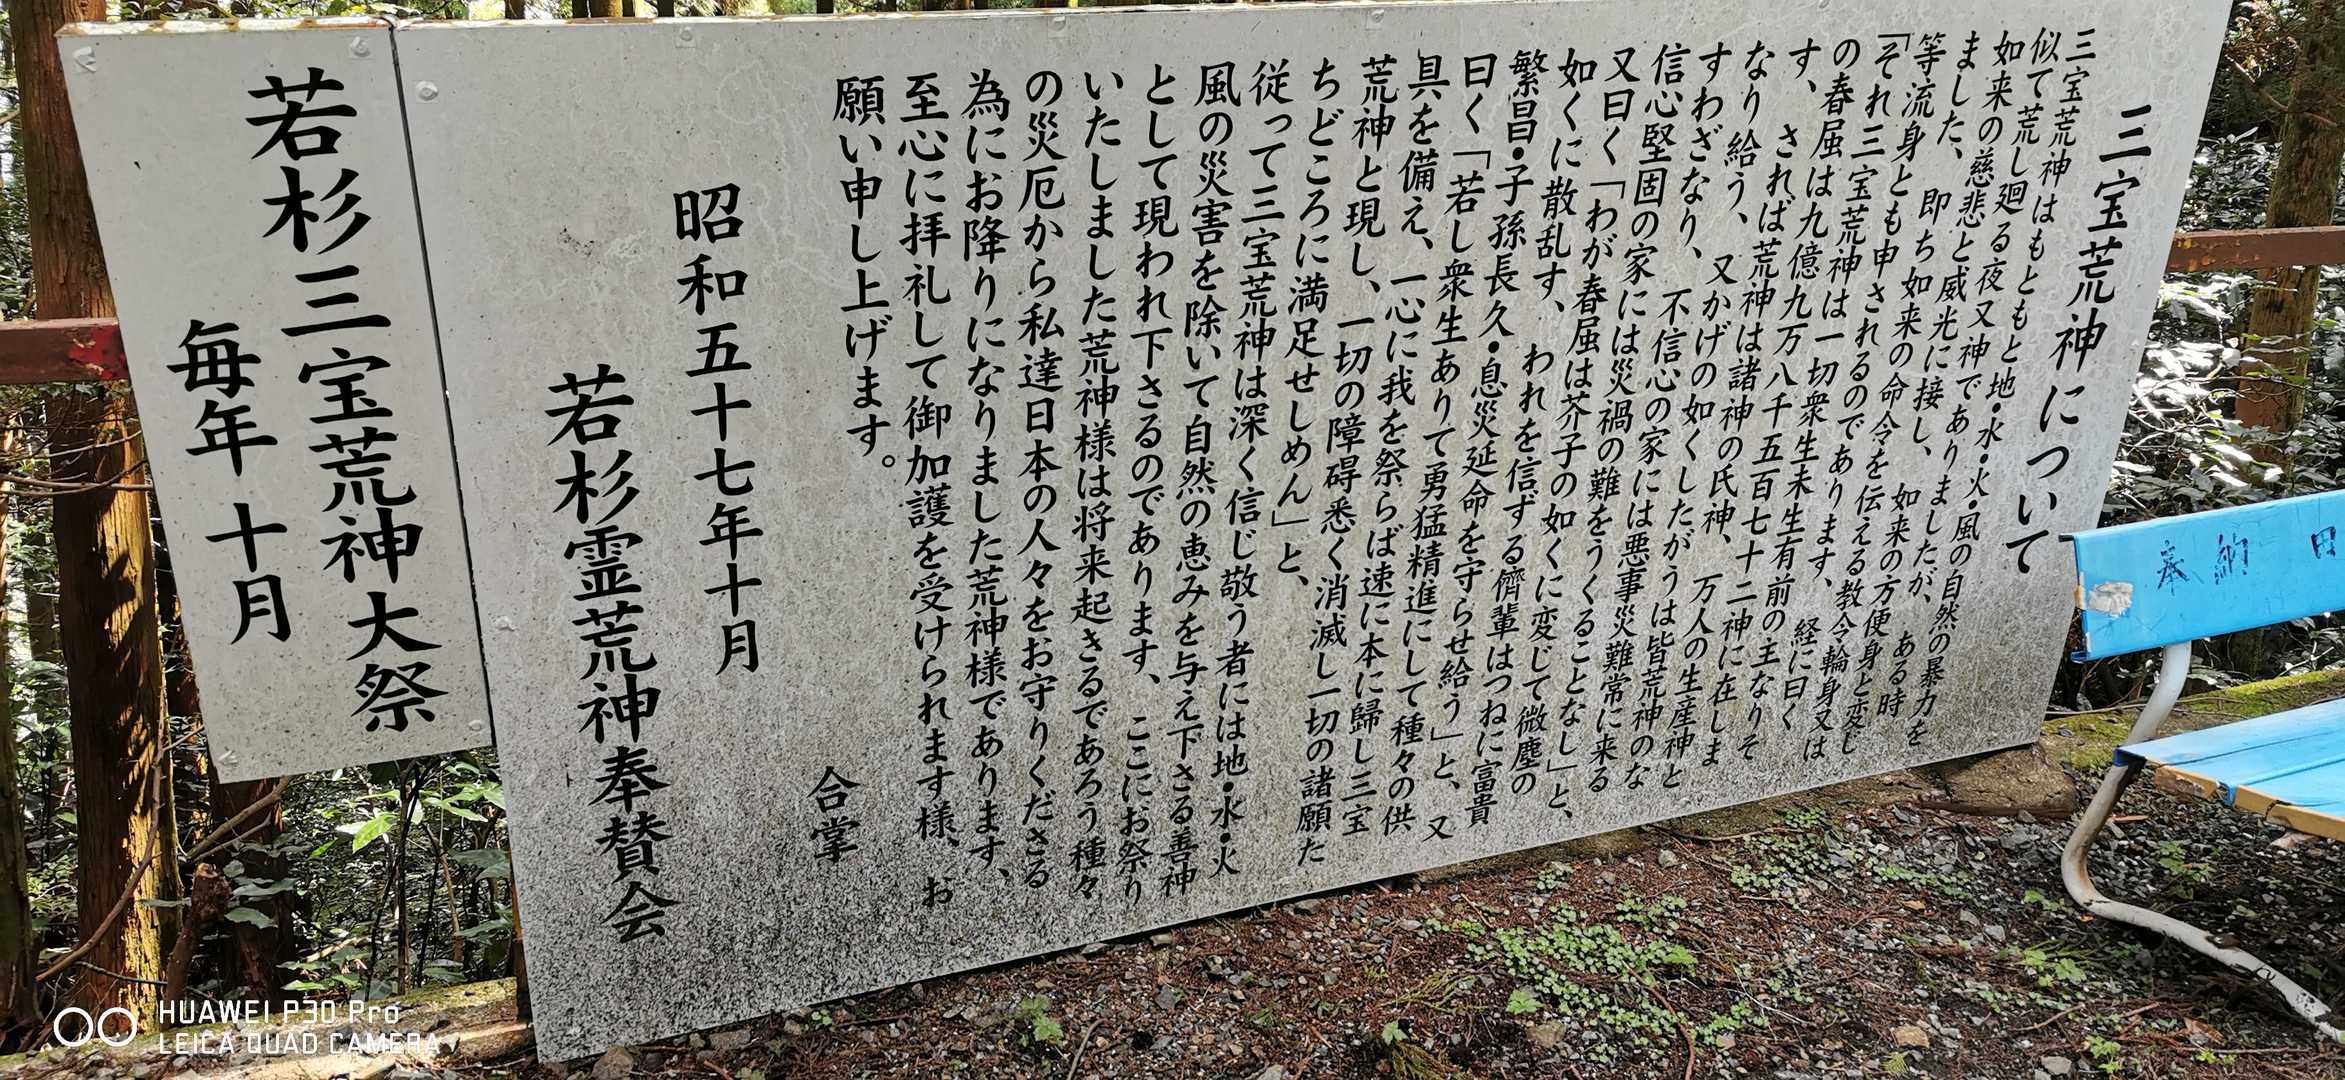 三宝荒神について
三宝荒神はもともと地・水・火・風の自然の暴力を
似て荒し廻る夜又神でありましたが、ある時
如来の慈悲と威光に接し、如来の方便身と変じ
ました、即ち如来の命令を伝える教令輪身又は
等流身とも申されるのであります、経に曰く
「それ三宝荒神は一切衆生未生有前の主なりそ
の春屈は九億九万八千五百七十二神に在しま
す、されば荒神は諸神の氏神、万人の生産神と
なり給う、又かげの如くしたがうは皆荒神のな
すわざなり、不信心の家には悪事災難常に来る
信心堅固の家には災禍の難をうくることなし」と、
又曰く「わが春屈は芥子の如くに変じて微塵の
如くに散乱す、われを信ずる儕輩はつねに富貴
繁昌・子孫長久・息災延命を守らせ給う」と、又
曰く「若し衆生ありて勇猛精進にして種々の供
具を備え、一心に我を祭らば速に本に歸し三宝
荒神と現し、一切の障碍悉く消滅し一切の諸願た
ちどころに満足せしめん」と、
従って三宝荒神は深く信じ敬う者には地・水・火
風の災害を除いて自然の恵みを与え下さる善神
として現われ下さるのであります、ここにお祭り
いたしました荒神様は将来起きるであろう種々
の災厄から私達日本の人々をお守りくださる
為にお降りになりました荒神様であります、
至心に拝礼して御加護を受けられます様、お
願い申し上げます。
合掌
昭和五十七年十月
若杉霊荒神奉賛会
若杉三宝荒神大祭
毎年十月
奉納 田
HUAWEI P30 Pro
LEICA QUAD CAMERA